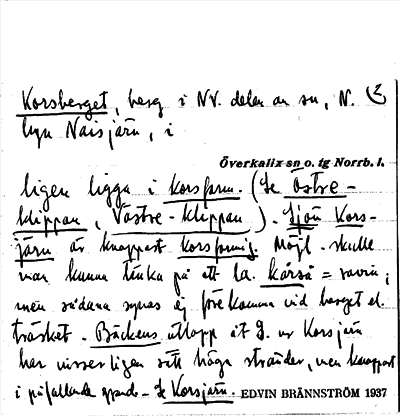 Korsberget, berg i NV. delen av sn, N.
byn Naisjärv, i
Överkalix sn o. tg Norrb. l.
ligen ligga i korsform. (Se Östre-
klippan, Västre-klippan). Sjön Kors-
järv är knappast korsformig. Möjl. skulle
man kunna tänka på ett la. kårså = ravin;
men sådana synas ej förekomma vid berget el.
träsket. Bäckens utlopp åt S. ur Korsjärv
har visserligen rätt höga stränder, men knappast
i påfallande grad. Se Korsjärv. EDVIN BRÄNNSTRÖM 1937